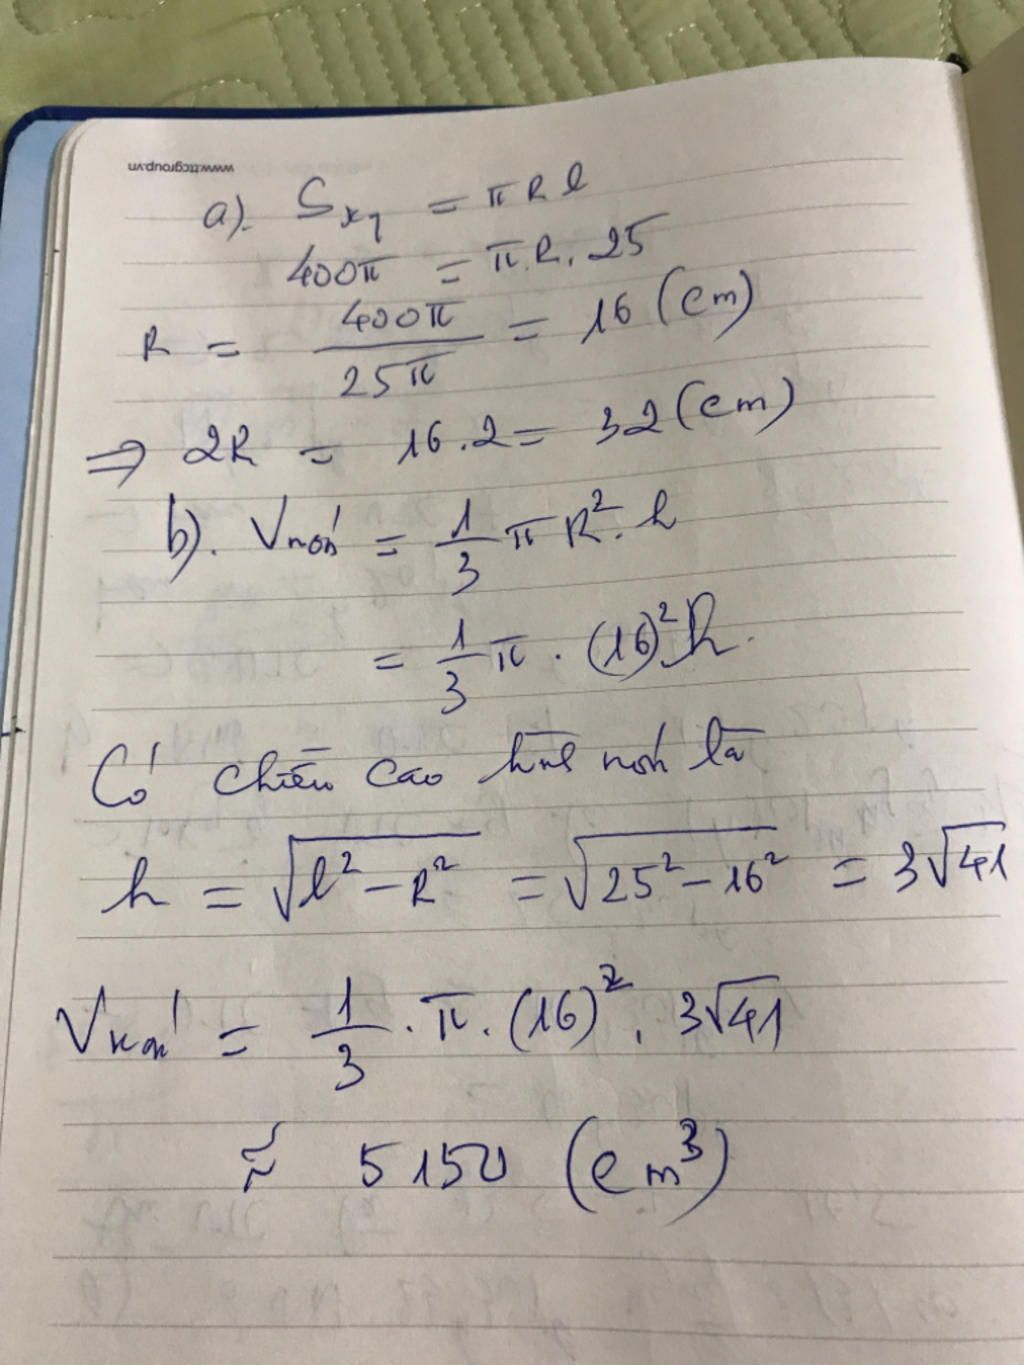 www.ttcgroup.vn
a). Sxq = πRl
400π = π.R.25
R = 400π / 25π = 16 (cm)
⇒ 2R = 16.2 = 32 (cm)
b). Vnón = 1/3 πR². h
= 1/3 π . (16)² h.
Có chiều cao hình nón là
h = √(l² – R²) = √(25² – 16²) = 3√41
Vnón = 1/3 . π . (16)² . 3√41
≈ 5150 (cm³)